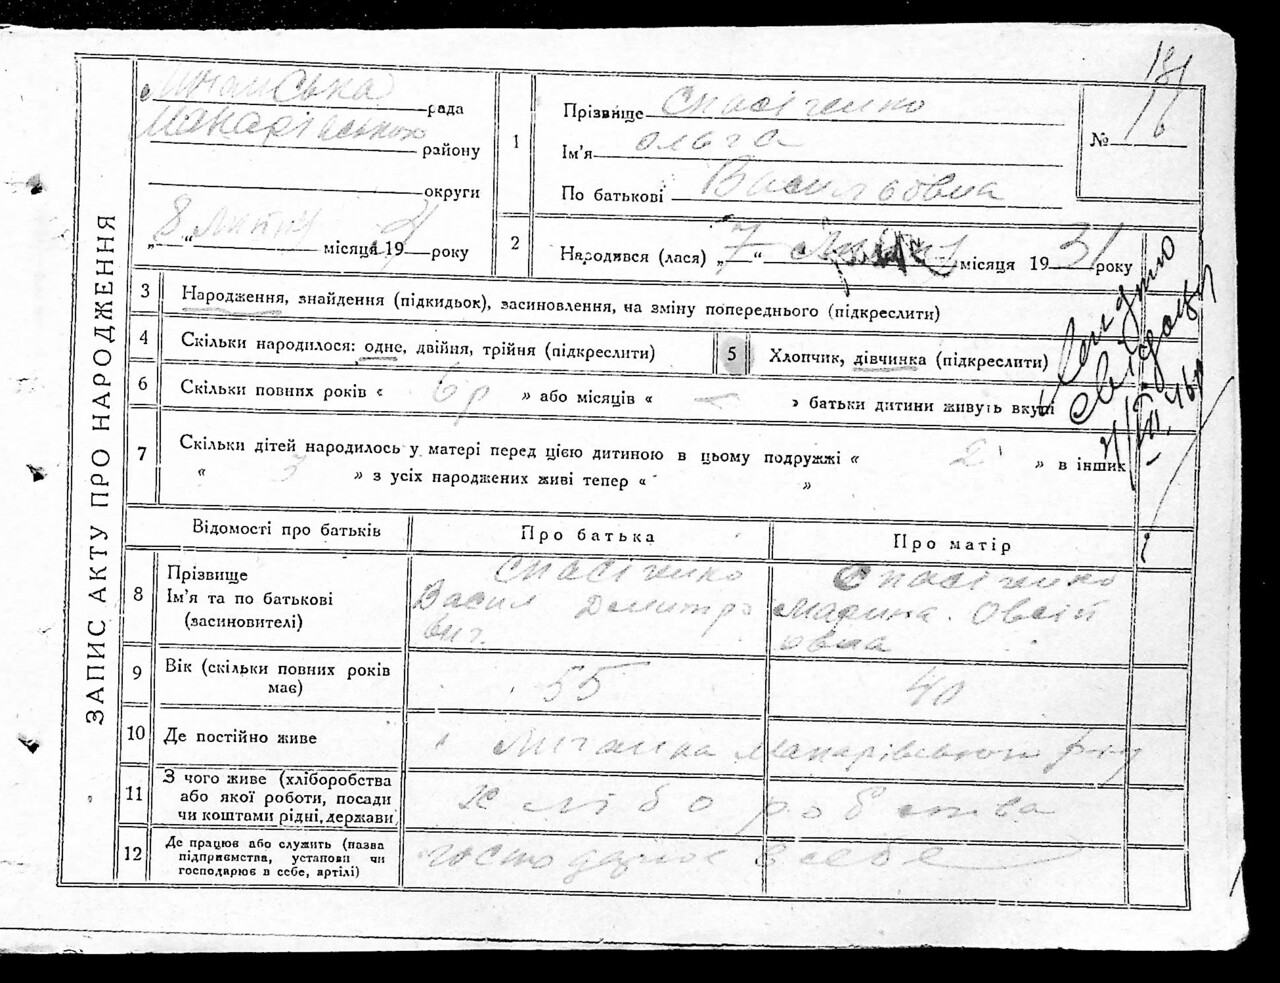 ЗАПИС АКТУ ПРО НАРОДЖЕННЯ
рада
Макарівського району
округи
„8“ лютня місяця 19 року
1
Прізвище
Ім'я Ольга
По батькові Васильовна
№ 16
2
Народився (лася) „7“ місяця 1931 року
3
Народження, знайдення (підкидьок), засиновлення, на зміну попереднього (підкреслити)
4
Скільки народилося: одне, двійня, трійня (підкреслити)
5
Хлопчик, дівчинка (підкреслити)
6
Скільки повних років « 6 р » або місяців « — » батьки дитини живуть вкупі
7
Скільки дітей народилось у матері перед цією дитиною в цьому подружжі « 2 » в інших
« 3 » з усіх народжених живі тепер « »
Відомості про батьків
Про батька
Про матір
8
Прізвище
Ім'я та по батькові
(засиновителі)
Васил Дмитро
вич.
Марина Овсій
овна
9
Вік (скільки повних років
має)
55
40
10
Де постійно живе
Макарівського р-ну
11
З чого живе (хліборобства
або якої роботи, посади
чи коштами рідні, держави
хліборобства
12
Де працює або служить (назва
підприємства, установи чи
господарює в себе, артілі)
господарює в себе